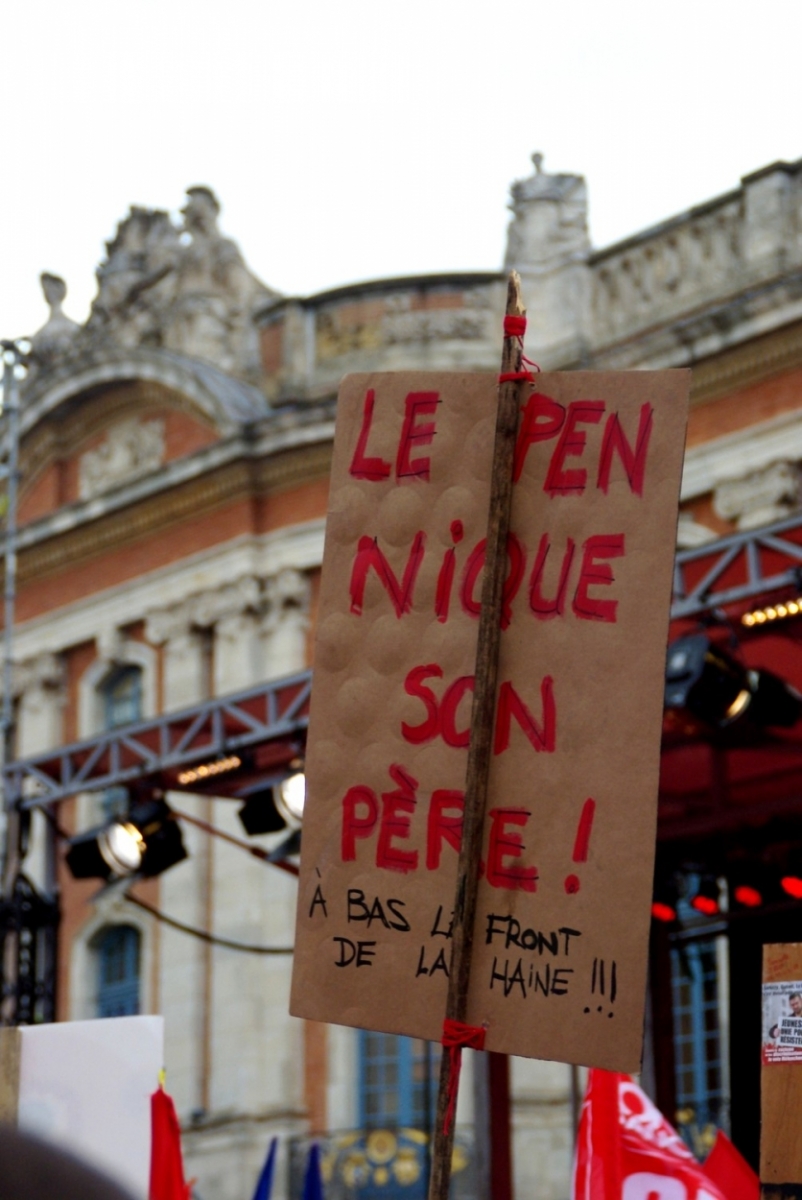 LE PEN
NiQUE
SON
PÈRE !
À BAS LE FRONT
DE LA HAINE !!!
JEUNES